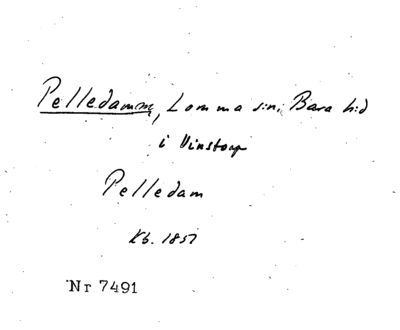 Pelledamm, Lomma sn, Bara hd
i Vinstorp
Pelledam
Kb. 1857
Nr 7491